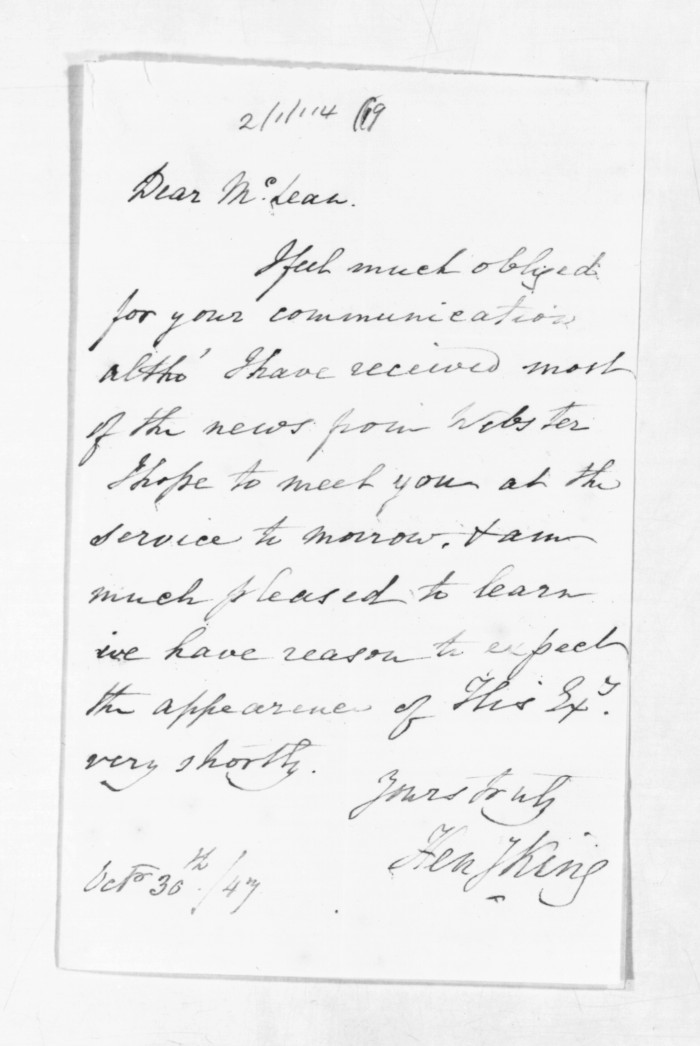 2/1/114 (19
Dear McLean.
I feel much obliged
for your communication
altho' I have received most
of the news from Webster
I hope to meet you at the
service to morrow. & am
much pleased to learn
we have reason to expect
the appearence of His Exy.
very shortly.
Yours truly
Hen J King
Octr 30th /47